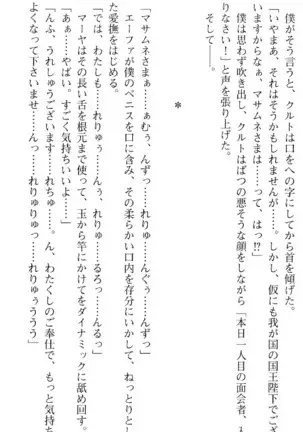 僕がそう言うと、クルトは口をへの字にしてから首を傾げた。
「いやまあ、それはそうかもしれませんが……。しかし、仮にも我が国の国王陛下でござ
いますからなぁ、マサムネさまは……って、はっ!?」
僕は思わず吹き出し、クルトはばつの悪そうな顔をしながら「本日一人目の面会者、入
りなさい！」と声を張り上げた。
そして――。
*
「マサムネさまぁ……ぁむぅ、んずっ……れりゅ……んぐぅ……んずっ」
エーファが僕のペニスを口に含み、その柔らかい口内を存分にいかして、ねっとりとし
た愛撫をはじめる。
「では、わたしも……れりゅぅ……んぅ、れりゅ……るろっ……んるっ」
マーヤはその長い舌を根元まで使って、玉から竿にかけてをダイナミックに舐め回す。
「あぁ……やばい。すごく気持ちいいよ……」
「んふ、うれしゅうございます……れちゅ……。ん、わたくしのご奉仕で、もっと気持ち
よくなって下さいませ……んっ……れりゅりゅっ……れりゅぅううう」